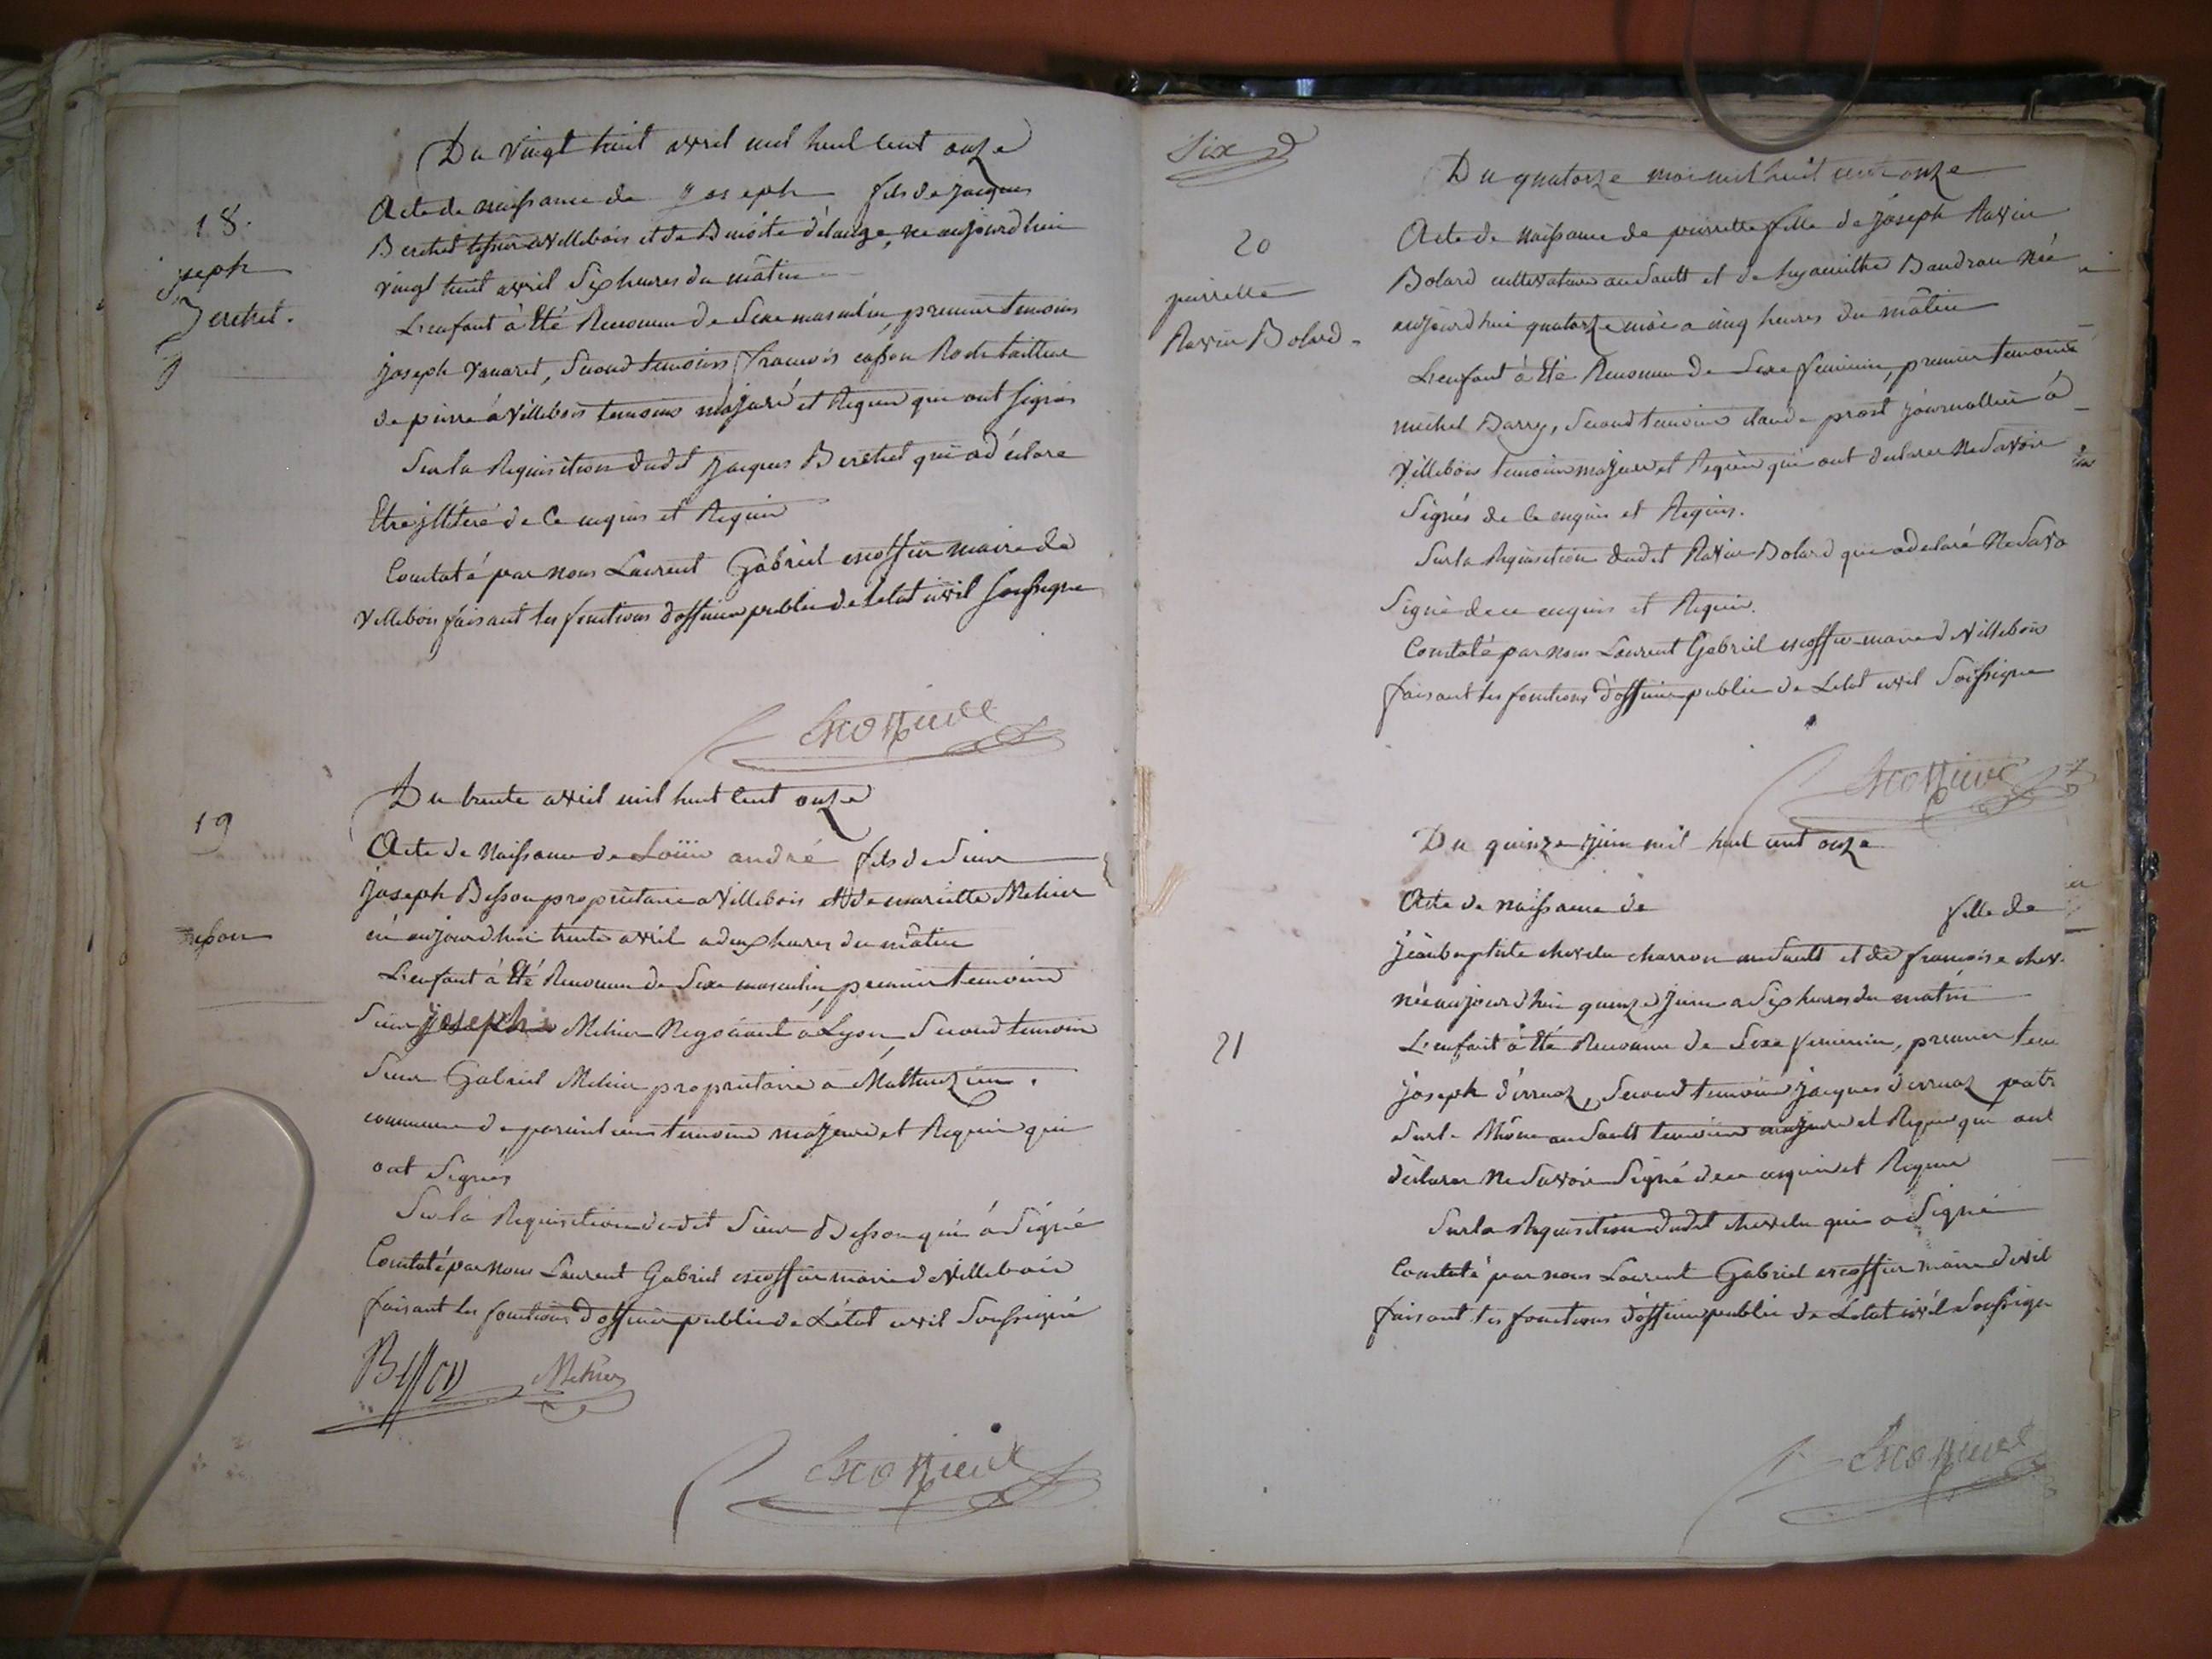 Du vingt huit avril mil huit cent onze
18.
joseph
Berchet.
Acte de naissance de joseph fils de jacques
Berchet à villebois et de Benoite délauge, né aujourdhui
vingt huit avril six heures du mâtin
L'enfant à Eté Reconnu de Sexe masculin, premier temoins
joseph vanaret, Second temoins francois casson
de pierre à villebois temoins majeure et Requis qui ont signés
Sur la Requisition dudit jacques Berchet qui a déclare
Etre jlliteré de Ce enquis et Requis
Constaté par nous Laurent Gabriel escoffier maire de
Villebois faisant les fonctions d'officier public de letat civil soussigne
Escoffier
Du trente avril mil huit cent onze
19
Besson
Acte de Naissance de Loüis andré fils de Sieur
joseph Besson proprietaire a villebois et de mariette Mehier
né aujourdhui trente avril a deux heures du mâtin
L'enfant à Eté Reconnu de Sexe masculin premier temoins
Sieur joseph Mehier Negociant à Lyon, Second temoin
Sieur Gabriel Mehier proprietaire a
commune de temoins majeure et Requis qui
ont Signés
Sur la Requisition dudit Sieur Besson qui à Signé
Constaté par nous Laurent Gabriel escoffier maire de Villebois
faisant les fonctions d'officier public de L'état civil Soussigné
Besson Mehier
Escoffier
Six
Du quatorze mai mil huit cent onze
20
pierrette
Ravier Bolard
Acte de Naissance de pierrette fille de joseph Ravier
Bolard cultivateur au Sault et de hyacinthe Baudran Née
aujourdhui quatorze mai a cinq heures du mâtin
L'enfant à Eté Reconnu de Sexe feminin, premier temoins
michel Barry, Second temoins claude prost journallier à
Villebois temoins majeure et Requis qui ont declarer Ne Savoir
Signés de Ce enquis et Requis.
Sur la Requisition dudit Ravier Bolard qui a declaré Ne Savo
Signé de ce enquis et Requis.
Constaté par nous Laurent Gabriel escoffier maire de Villebois
faisant les fonctions d'officier public de Letat civil Soussigne
Escoffier
Du quinze juin mil huit cent onze
Acte de naissance de fille de
jeanbaptiste chevelu charron au Sault et de francoise chev
née aujourdhui quinze juin a Six heures du matin
21
L'enfant à Eté Reconnu de Sexe feminin, premier tem
joseph derruaz, Second temoins jacques derruaz patr
Sur le Rhône au Sault temoins majeure et Requis qui ont
déclarer Ne Savoir Signé de ce enquis et Requis
Sur la Requisition dudit chevelu qui a Signé
Constaté par nous Laurent Gabriel escoffier maire de vil
faisant les fonctions d'officier public de Létat civil Soussigne
Escoffier